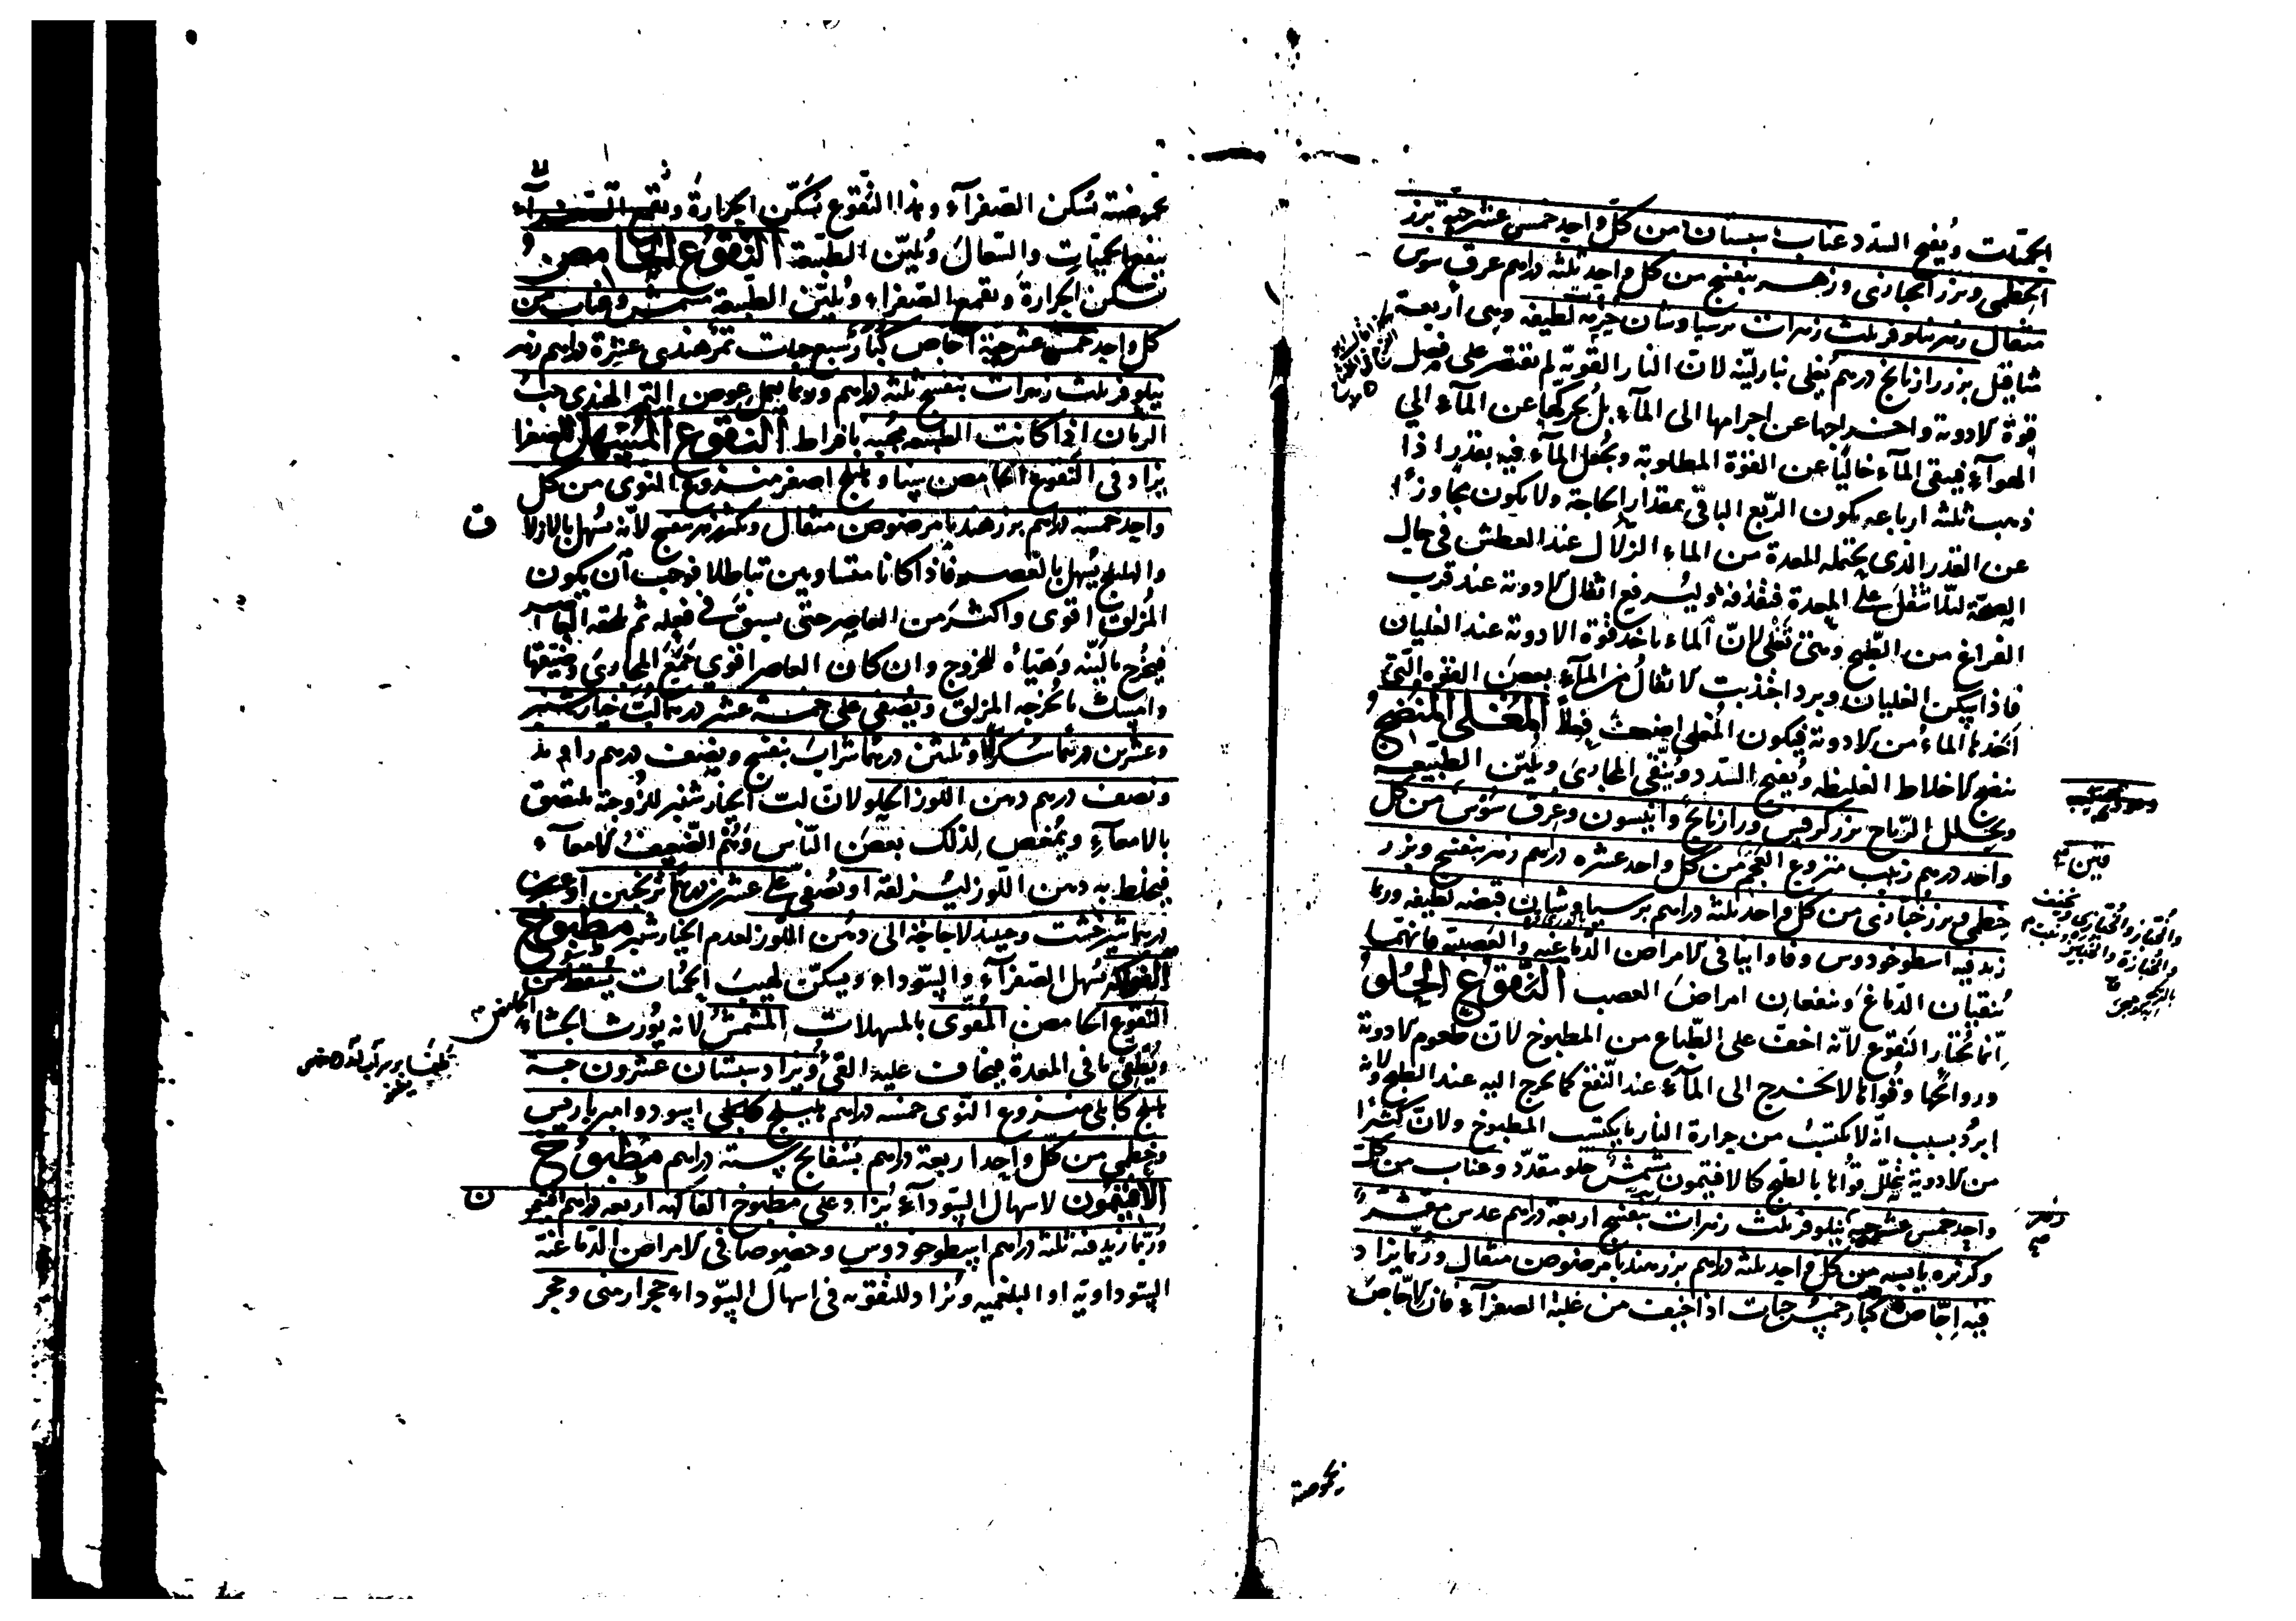 الحميات ويفتح السدد عناب سبستان من كل واحد خمس عشر حبة بزر
الخطمي وبزر الخبازى وزهر بنفسج من كل واحد ثلثه دراهم عرق سوس
مثقال زهر نيلوفر ثلث زهرات برسياوشان حزمة لطيفه وهى اربعة
مثاقيل بزر رازيانج درهم يغلى بنار لينة لان النار القوية لم تقتصر على فصل
قوة الادوية واخراجها عن اجرامها الى المآء بل يحركها عن المآء الى
الهوآء فيبقى المآء خاليا عن القوة المطلوبة ويجعل المآء فيه بقدر اذا
ذهب ثلثة ارباعه يكون الربع الباقى بمقدار الحاجة ولا يكون مجاوزا
عن القدر الذى يحتمله المعدة من الماء الزلال عند العطش فى حال
الصحة لئلا تثقل على المعدة فتقذفه وليسرفع اثقال الادوية عند قرب
الفراغ من الطبخ ومتى تغلى لان الماء ياخذ قوة الادوية عند الغليان
فاذا سكن الغليان وبرد اجتذبت الاثقال من المآء بعض القوة التى
اخذها الماء من الادوية فيكون المغلى اضعف فعلا المغلى المنضج
ينضج الاخلاط الغليظه ويفتح السدد وينقى المجارى ويلين الطبيعه
ويحلل الرياح بزر كرفس ورازيانج وانيسون وعرق سوس من كل
واحد درهم زبيب منزوع العجم من كل واحد عشره دراهم زهر بنفسج وبزر
خطمى وبزر خبازى من كل واحد ثلثه دراهم برسياوشان قبضه لطيفه وربما
زيد فيه اسطوخودوس وفاوانيا فى الامراض الدماغيه والعصبية فانهما
ينقيان الدماغ وينفعان امراض العصب النقوع الحلو
انما يختار النقوع لانه اخف على الطباع من المطبوخ لان طعوم الادوية
وروائحها وقواها لا يخرج الى المآء عند النقع كما يخرج اليه عند الطبخ ولانه
ابرد بسبب انه لا يكتسب من حرارة النار ما يكتسب المطبوخ ولان كثيرا
من الادوية يتحلل قواها بالطبخ كالافتيمون مشمش حلو مقدد وعناب من كل
واحد خمس عشر حبة نيلوفر ثلث زهرات بنفسج اربعة دراهم عدس مقشر
وكزبره يابسه من كل واحد ثلثه دراهم بزر هندبا مرضوض مثقال وربما يزاد
فيه اجاص كبار خمس حبات اذا خيف من غلبة الصفرآء فان الاجاص
بحموضته يسكن الصفرآء وهذا النقوع يسكن الحرارة ويقمع الصفرآء
ينفع الحميات والسعال ويلين الطبيعة النقوع الحامض
يسكن الحرارة ويقمع الصفراء ويلين الطبيعه مشمش وعناب من
كل واحد خمس عشر حبة اجاص كبار سبع حبات تمر هندى عشرة دراهم زهر
نيلوفر ثلث زهرات بنفسج ثلثه دراهم وربما يجعل عوض التمر الهندى حب
الرمان اذا كانت الطبيعه مجيبه بافراط النقوع المسهل للصفرا
يزاد فى النقوع الحامض سنا وهليلج اصفر منزوع النوى من كل
واحد خمسة دراهم بزر هندبا مرضوض مثقال ويكثر زهر بنفسج لانه يسهل بالازلا
ق
والهليلج يسهل بالعصر فاذا كانا متساويين تباطلا فوجب ان يكون
المزلق اقوى واكثر من العاصر حتى يسبق فى فعله ثم يلحقه العاصر
فيخرج ما لينه وهيأه للخروج وان كان العاصر اقوى جمع المجارى وضيقها
وامسك ما يخرجه المزلق ويصفى على خمسة عشر درهما لب خيار شنبر
وعشرين درهما سكرا وثلثين درهما شراب بنفسج ونصف درهم راوند
ونصف درهم دهن اللوز الحلو لان لب الخيار شنبر للزوجته يلتصق
بالامعآء ويمغص لذلك بعض الناس وهم الضعيف الامعآء
فيخلط به دهن اللوز ليسرزلقه او يصفى على عشرين درهما ترنجبين او عشرين
درهما شيرخشت وحينئذ لا حاجة الى دهن اللوز لعدم الخيار شنبر مطبوخ
الفواكه يسهل الصفرآء والسوداء ويسكن لهيب الحميات يسقط من
النقوع الحامض المقوى بالمسهلات المشمش لانه يورث الجشاء الحامض
ويطفى ما فى المعدة فيخاف عليه القئ ويزاد سبستان عشرون حبة
هليلج كابلى منزوع النوى خمسه دراهم هليلج كابلى اسود وامبرباريس
وخطمى من كل واحد اربعة دراهم بسفايج ستة دراهم مطبوخ
الافتيمون لاسهال السودآء يزاد على مطبوخ الفاكهه اربعه دراهم افتيمو
ن
وربما زيد فيه ثلثة دراهم اسطوخودوس وخصوصا فى الامراض الدماغية
السوداوية او البلغميه ويزاد للتقويه فى اسهال السوداء حجر ارمنى وحجر